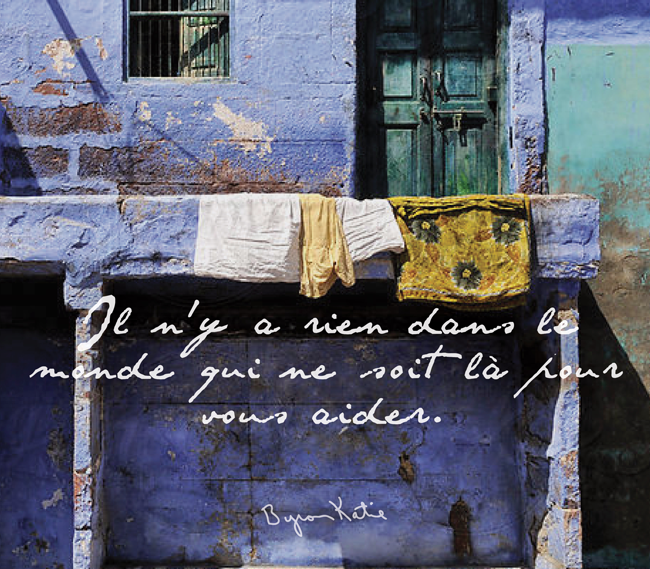 Il n'y a rien dans le
monde qui ne soit là pour
vous aider.
Byron Katie